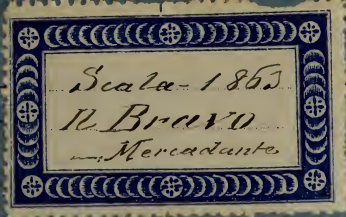 Scala - 1863
Il Bravo
Mercadante